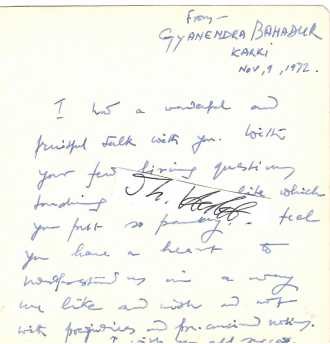 From —
GYANENDRA BAHADUR
KARKI
Nov, 9, 1972.
I had a wonderful and
fruitful talk with you. With
your few firing questions
touching like which
you put so feel
you have a heart to
understand us in a way
we like and wish and not
with prejudices and pre-conceived notions.
I wish you all success